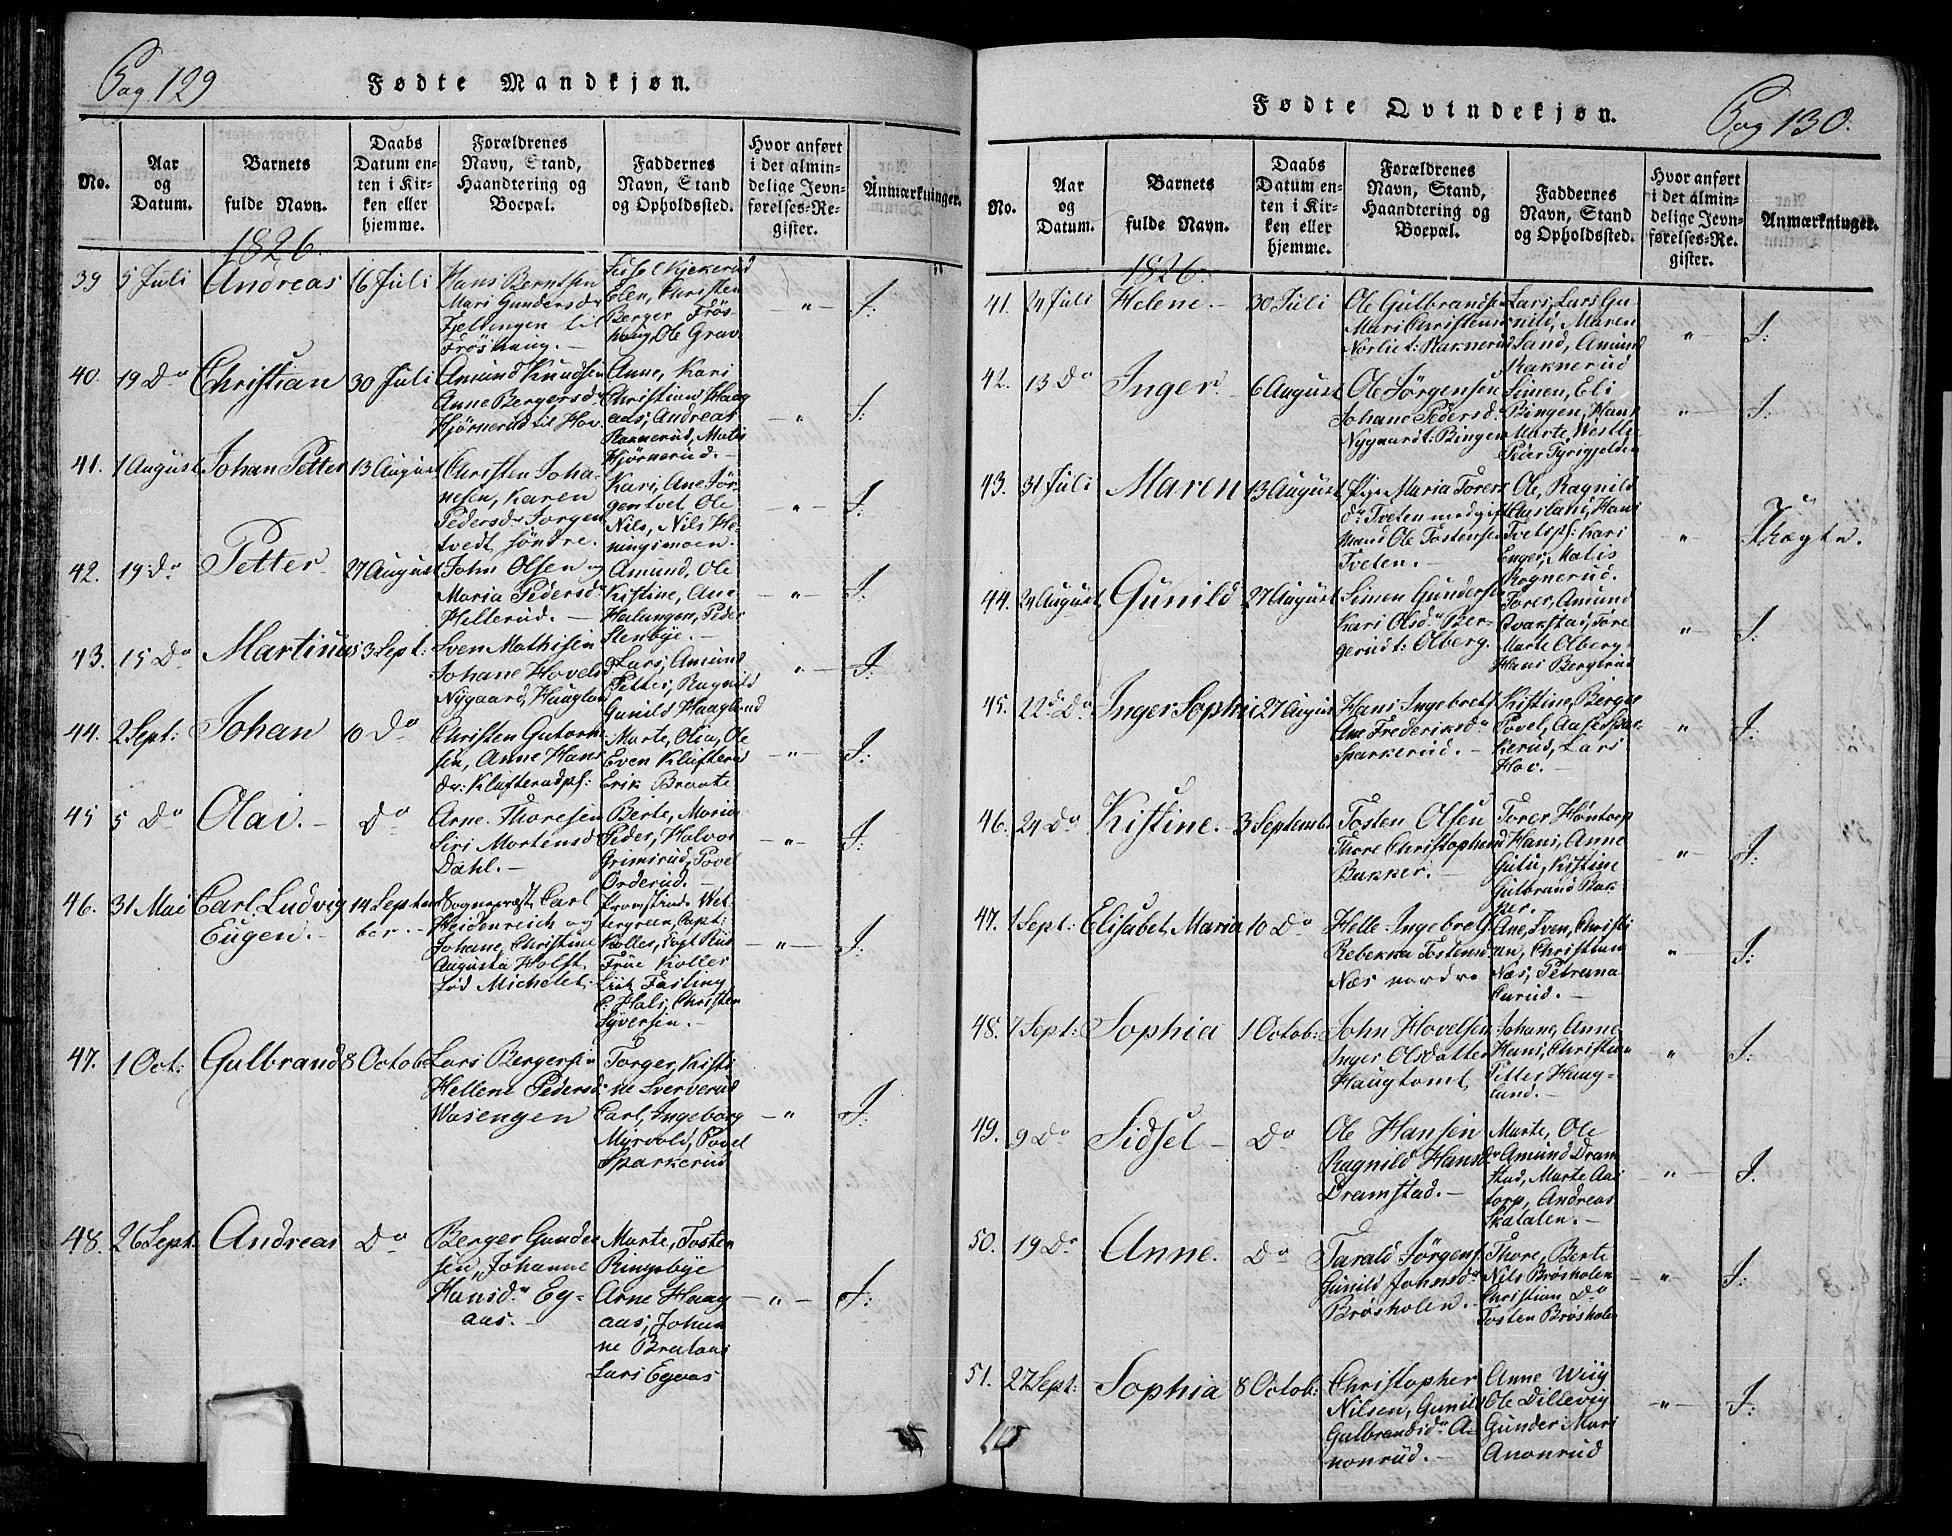 Pag 129
Fødte Mandkjøn.
No.
Aar
og
Datum.
Barnets
fulde Navn.
Daabs
Datum en-
ten i Kir-
ken eller
hjemme.
Forældrenes
Navn, Stand,
Haandtering og
Boepæl.
Faddernes
Navn, Stand
og Opholdssted.
Hvor anført
i det almin-
delige Jevn-
førelses-Re-
gister.
Anmærkninger.
1826
39 5 Juli Andreas 16 Juli
Hans Berntsen
Mari Gundersdr
Fjeldengen til
Frøshaug.
Elen, Christen
Berger Frøs-
haug, Ole Grav
" I:
40. 19 Do Christian 30 Juli
Amund Knudsen
Anne Bergersd.
Hjørnerud til Hov.
Anne, Kari
Christian Haag
aas, Andreas
Raknerud, Matis
Hjørnerud.
" I:
41. 1 August Johan Petter 13 August
Christen Joha-
nesen, Karen
Pedersdr Jorgen
tvedt søndre.
Kari, Ane Jør-
gentvet, Ole
Nils, Nils He-
ningsmoen.
" I:
42. 19 Do Petter 27 August
John Olsen og
Maria Pedersd.
Hellerud.
Amund, Ole
Kistine, Ane
Halungen, Peder
Stenbye.
" I:
43. 15 Do Martinus 3 Sept:
Sven Mathisen
Johane Hovelsd
Nygaard, Hauglan
Lars, Amund
Petter, Ragnild
Gunild Haaglund
" I:
44. 2 Sept: Johan 10 Do
Christen Gutorm
sen, Anne Hans
dr: Klufterudpf:
Marte, Olia, Ole
Even Klufterud
Erik Braate
" I:
45 5 Do Olai. Do
Arne Thoresen
Siri Mortensd
Dahl.
Berte, Maria
Peder, Halvor
Grimsrud, Povel
Orderud.
" I:
46. 31 Mai Carl Ludvig
Eugen. 14 Septem
ber.
Sognepræst Carl
Heidenreich og
Johane Christine
Augusta Holst
fød Michelet.
Provstinde Wet-
tergreen, Capt:
Koller, Fogt Riis
Frue Koller
Liut. Fasting
C: Hals, Christen
Syversen.
" I:
47. 1 Oct: Gulbrand 8 Octob:
Lars Bergersen
Hellene Pedersd:
Wasengen
Torger, Kisti
ne Sververud
Carl, Ingeborg
Myrvold, Povel
Sparkerud
" I:
48. 26 Sept: Andreas Do
Berger Gunder
sen, Johanne
Hansd. Eg-
aas.
Marte, Tosten
Ringsbye
Arne Haag
aas, Johan
ne Brataas
Lars Egaas
" I:
Pag 130.
Fødte Qvindekjøn.
No.
Aar
og
Datum.
Barnets
fulde Navn.
Daabs
Datum en-
ten i Kir-
ken eller
hjemme.
Forældrenes
Navn, Stand,
Haandtering og
Boepæl.
Faddernes
Navn, Stand
og Opholdssted.
Hvor anført
i det almin-
delige Jevn-
førelses-Re-
gister.
Anmærkninger.
1826.
41. 24 Juli Helene. 30 Juli
Ole Gulbrandsen
Mari Christens
Norlie t: Raknerud
Lars, Lars Gu
nild, Maren
Sand, Amund
Raknerud
" I:
42. 13 Do Inger 6 August
Ole Jørgensen
Johane Pedersd.
Nygaard t: Bingen
Simen, Eli
Bingen, Hans
Marte, Westli
Peter Tyrigjelden
" I:
43. 31 Juli Maren 13 August
Pige Maria Torers
dr Tveten med gift
Mand Ole Tostensen
Tveten.
Ole, Ragnild
Aaslani, Hans
Tvetspf: Kari
Enger, Matis
Rognerud.
" Uægte.
44. 24 August Gunild 27 August
Simen Gunders
Kari Olsd. Ber-
gerud t: Olberg.
Torer, Amund
Qvakstad, Tore
Marte Olberg
Hans Bergerud
" I:
45. 22 Do Inger Sophi 27 August
Hans Ingebrets
Ane Frederiksd.
Sparkerud.
Kistine, Berger
Povel, Aase Spar-
kerud, Lars
Hov.
" I:
46. 24 Do Kistine. 3 Septemb:
Tosten Olsen
Thore Christophersd
Bakker.
Torer Høntorp
Hans, Anne
Gulu, Kistine
Gulbrand Bak-
ker.
" I:
47. 1 Sept: Elisabet Maria 10 Do
Helle Ingebrets
Rebekka Tostensd
Næs nordre
Ane, Sven, Christi
an, Christian
Næs, Petrina
Curud.
" I:
48. 7 Sept: Sophia 1 Octob:
John Hovelsen
Inger Olsdatter
Haugtomt,
Johane, Anne
Hans, Christian
Petter Haag-
lund.
" I:
49. 9 Do Sidsel Do
Ole Hansen
Ragnild Hansd
Dramstad.
Marte, Ole
Amund Dram-
stad, Marte Aas
torp, Andreas
Skatalen.
" I.
50. 19 Do Anne. Do
Tarald Jørgens
Gunild Johnsd.
Brøsholen.
Thore, Berte
Nils Brøsholen
Christian Do
Tosten Brøsholen
" I:
51. 27 Sept: Sophia 8 Octob:
Christopher
Nilsen, Gunild
Gulbrandsd. A-
nonrud.
Anne Wiig
Ole Dillevig
Gunder Mari
Anonrud
" I: